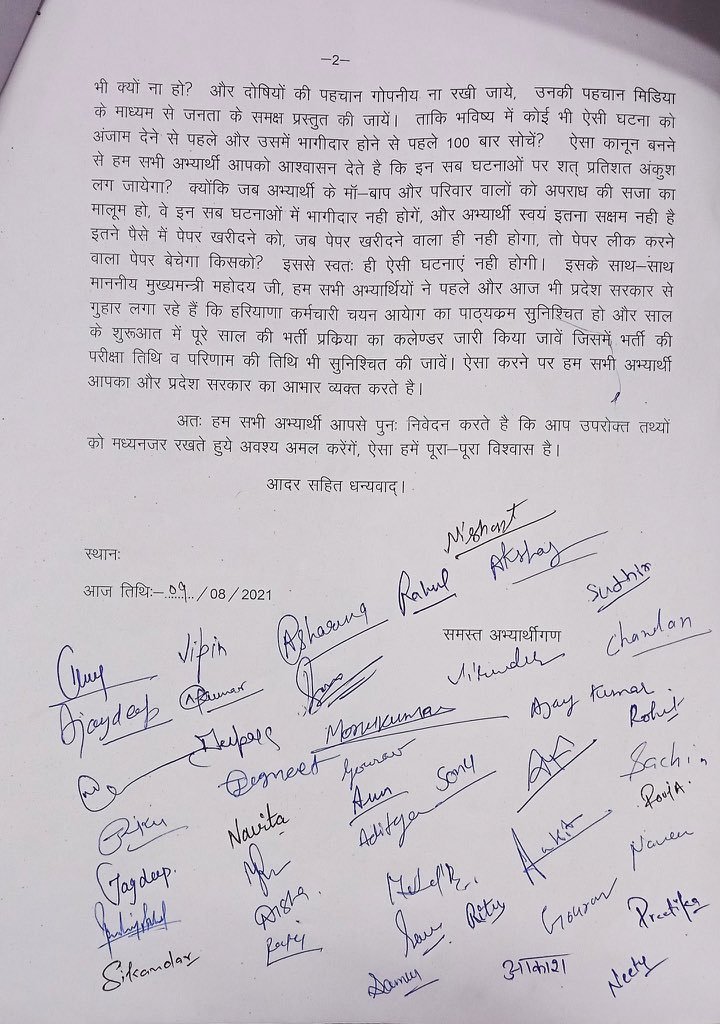 —2—
भी क्यों ना हो? और दोषियों की पहचान गोपनीय ना रखी जाये, उनकी पहचान मिडिया
के माध्यम से जनता के समक्ष प्रस्तुत की जायें। ताकि भविष्य में कोई भी ऐसी घटना को
अंजाम देने से पहले और उसमें भागीदार होने से पहले 100 बार सोचें? ऐसा कानून बनने
से हम सभी अभ्यार्थी आपको आश्वासन देते है कि इन सब घटनाओं पर शत् प्रतिशत अंकुश
लग जायेगा? क्योंकि जब अभ्यार्थी के मॉ–बाप और परिवार वालों को अपराध की सजा का
मालूम हो, वे इन सब घटनाओं में भागीदार नही होगें, और अभ्यार्थी स्वयं इतना सक्षम नही है
इतने पैसे में पेपर खरीदने को, जब पेपर खरीदने वाला ही नही होगा, तो पेपर लीक करने
वाला पेपर बेचेगा किसको? इससे स्वतः ही ऐसी घटनाएं नही होगी। इसके साथ–साथ
माननीय मुख्यमन्त्री महोदय जी, हम सभी अभ्यार्थियों ने पहले और आज भी प्रदेश सरकार से
गुहार लगा रहे हैं कि हरियाणा कर्मचारी चयन आयेाग का पाठ्यकम सुनिश्चित हो और साल
के शुरूआत में पूरे साल की भर्ती प्रकिया का कलेण्डर जारी किया जावें जिसमें भर्ती की
परीक्षा तिथि व परिणाम की तिथि भी सुनिश्चित की जावें। ऐसा करने पर हम सभी अभ्यार्थी
आपका और प्रदेश सरकार का आभार व्यक्त करते है।
अतः हम सभी अभ्यार्थी आपसे पुनः निवेदन करते है कि आप उपरोक्त तथ्यों
को मध्यनजर रखते हुये अवश्य अमल करेंगें, ऐसा हमें पूरा–पूरा विश्वास है।
आदर सहित धन्यवाद्।
Nishant
स्थानः
आज तिथिः–..09../08/2021
Rahul Akshay
Sudhir
Vipin
समस्त अभ्यार्थीगण
Chandan
Ajaydeep
Monukumar Ajay Kumar
Rohit
Gourav
Sony
Sachin
Navita Arun
Aditya
Pooja
Jagdeep.
Ankit
Naveen
Aisha.
Ritu Gourav
Preetika
Sikandar
आकाश
Neetu